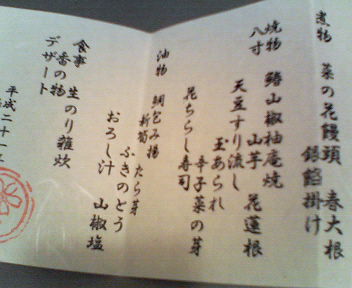 煮物 菜の花饅頭 春大根
銀餡掛け
焼物 鰆山椒柚庵焼
八寸 山芋 花蓮根
天豆すり流し
玉あられ
辛子菜の芽
花ちらし寿司
油物 鯛包み揚
新筍 たら芽
ふきのとう
おろし汁 山椒塩
食事 生のり雑炊
香の物
デザート
平成二十一